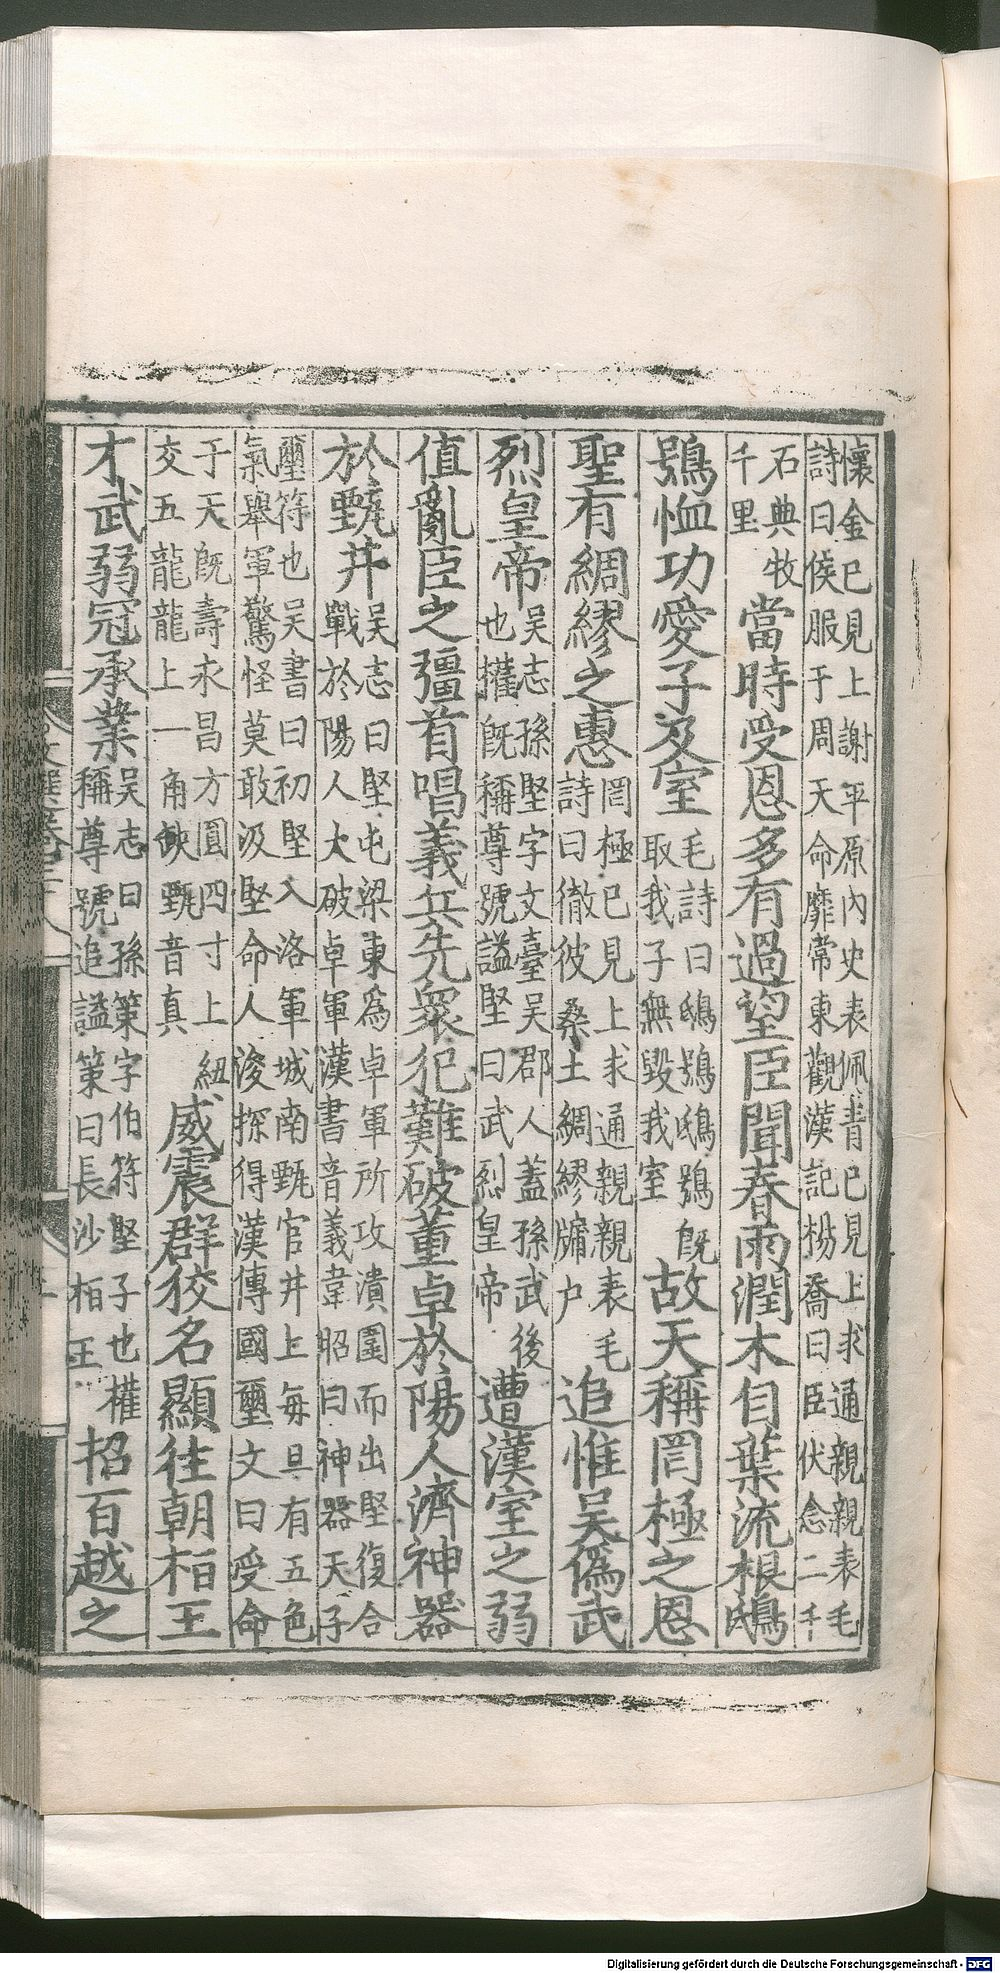 懷金已見上謝平原內史表佩青已見上求通親親表毛
詩曰侯服于周天命靡常東觀漢記楊喬曰臣伏念二千
石典牧
千里
當時受恩多有過望臣聞春雨潤木自葉流根鴟
鴞恤功愛子及室
毛詩曰鴟鴞鴟鴞既
取我子無毀我室
故天稱罔極之恩
聖有綢繆之惠
罔極已見上求通親親表毛
詩曰徹彼桑土綢繆牖户
追惟吳僞武
烈皇帝
吳志孫堅字文臺吳郡人蓋孫武後
也權既稱尊號謚堅曰武烈皇帝
遭漢室之弱
值亂臣之彊首唱義兵先衆犯難破董卓於陽人濟神器
於甄井
吳志曰堅屯梁東爲卓軍所攻潰圍而出堅復合
戰於陽人大破卓軍漢書音義韋昭曰神器天子
璽符也吳書曰初堅入洛軍城南甄官井上每旦有五色
氣舉軍驚怪莫敢汲堅命人浚探得漢傳國璽文曰受命
于天既壽永昌方圓四寸上紐
交五龍龍上一角缺甄音真
威震群狡名顯往朝栢王
才武弱冠承業
吳志曰孫策字伯符堅子也權
稱尊號追謚策曰長沙栢王
招百越之
Digitalisierung gefördert durch die Deutsche Forschungsgemeinschaft - DFG